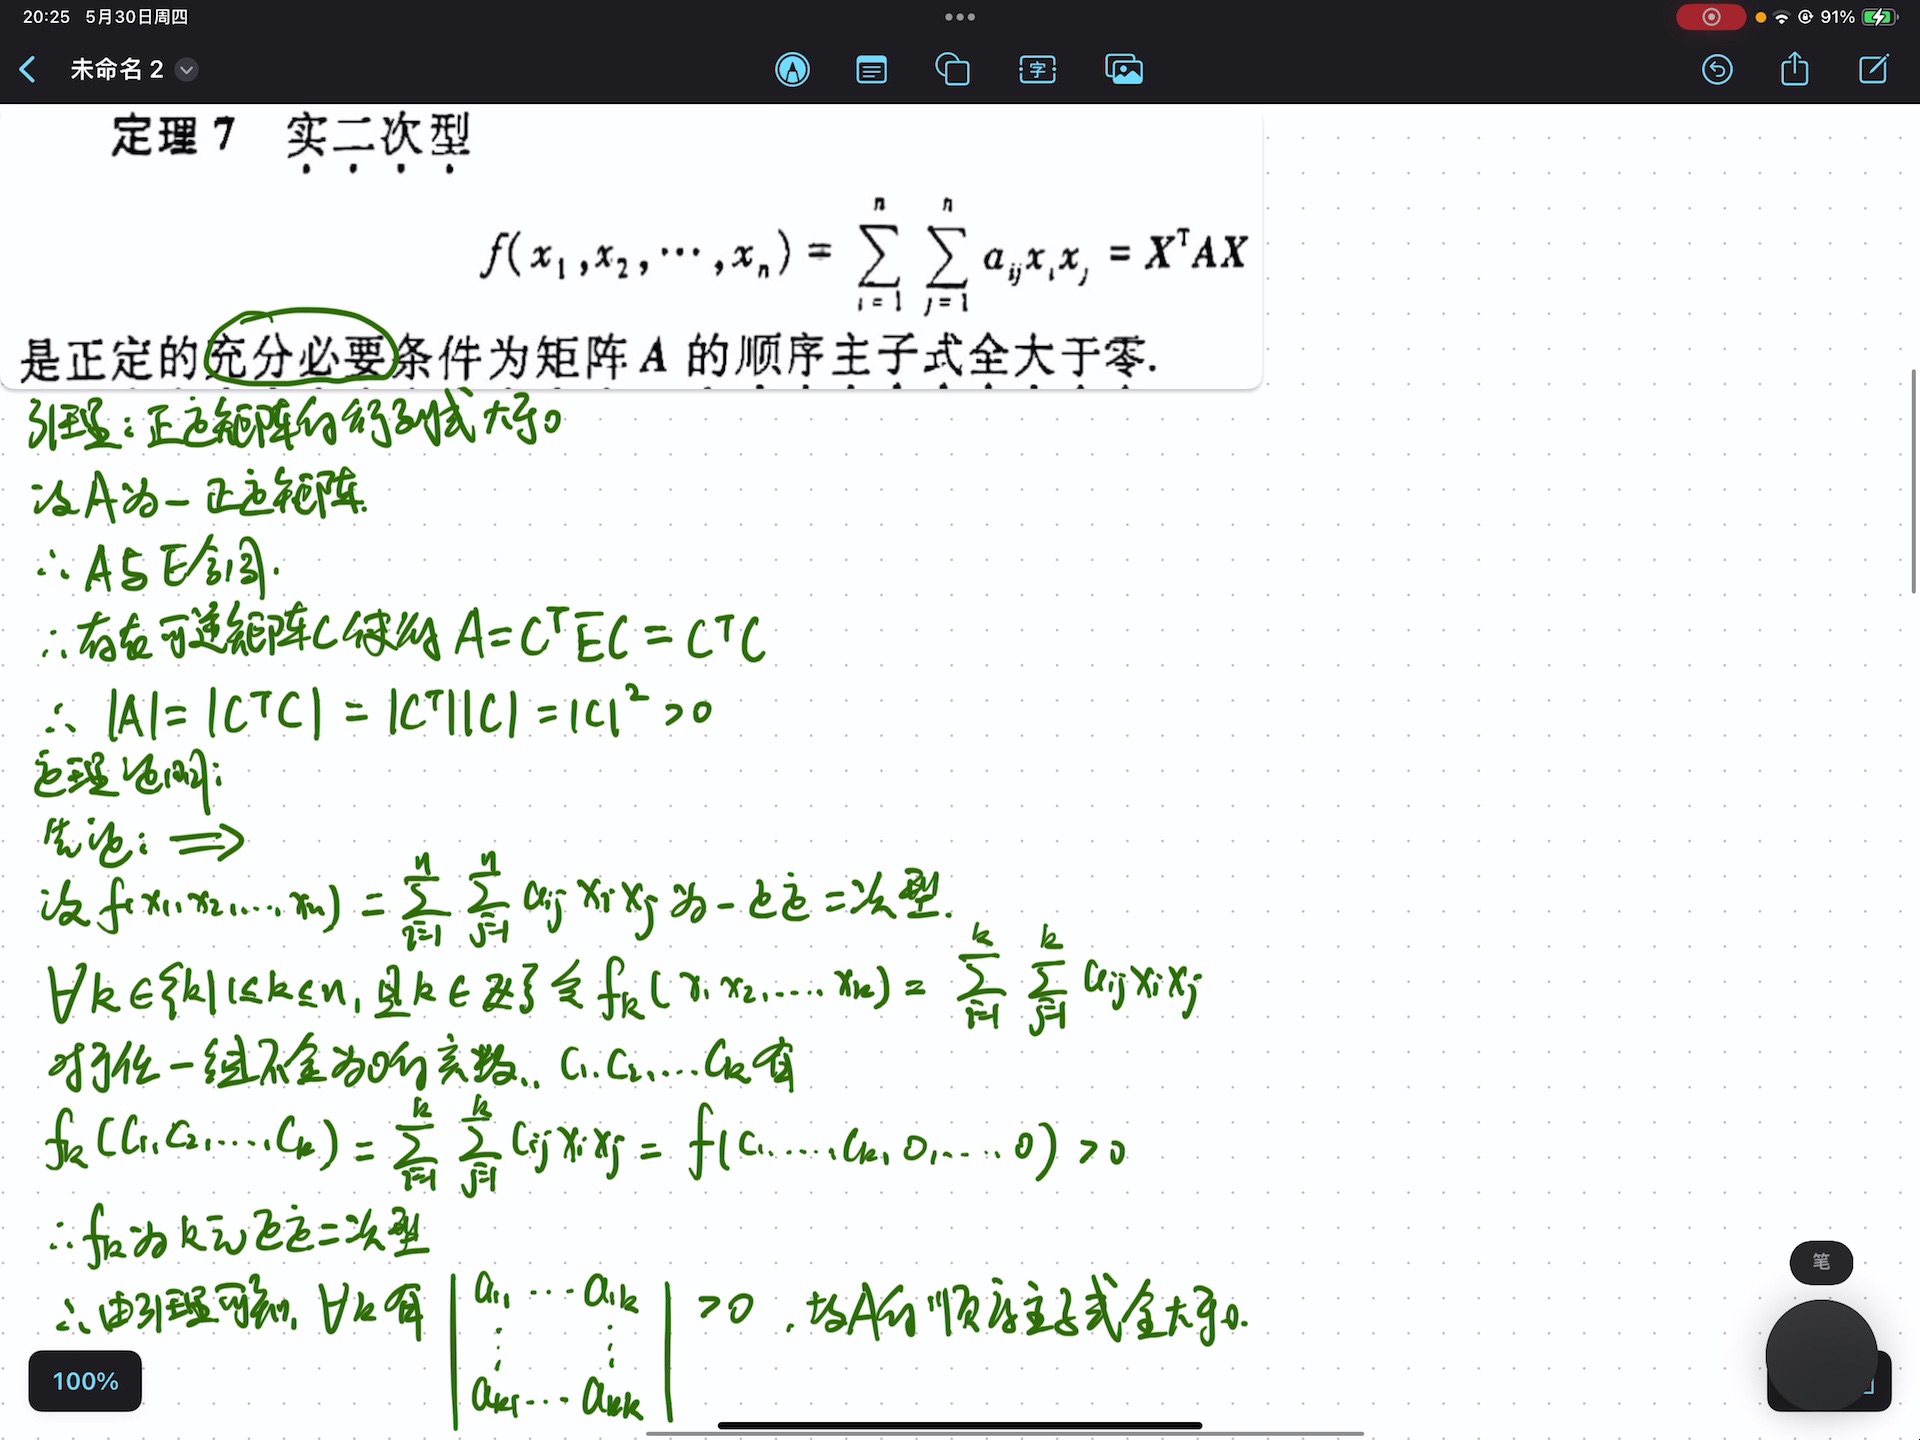 20:25 5月30日周四
91%
未命名 2
字
定理 7 实二次型
f(x₁,x₂,⋯,xₙ) = ∑ᵢ₌₁ⁿ ∑ⱼ₌₁ⁿ aᵢⱼxᵢxⱼ = XᵀAX
是正定的充分必要条件为矩阵 A 的顺序主子式全大于零.
引理:正定矩阵的行列式大于0
设A为一正定矩阵.
∴A与E合同.
∴存在可逆矩阵C使得 A=CᵀEC=CᵀC
∴ |A|=|CᵀC|=|Cᵀ||C|=|C|²>0
定理证明:
先证: ⟹
设f(x₁,x₂,...,xₙ)=∑ᵢ₌₁ⁿ ∑ⱼ₌₁ⁿ aᵢⱼxᵢxⱼ为一正定二次型.
∀k∈{k|1≤k≤n,且k∈Z}令fₖ(x₁x₂,....xₖ)=∑ᵢ₌₁ᵏ ∑ⱼ₌₁ᵏ aᵢⱼxᵢxⱼ
对于任一组不全为0的实数.. c₁.c₂,...cₖ有
fₖ(c₁,c₂,...,cₖ)=∑ᵢ₌₁ᵏ ∑ⱼ₌₁ᵏ cᵢⱼxᵢxⱼ=f(c₁,...,cₖ,0,...,0)>0
∴fₖ为k元正定二次型
∴由引理可知,∀k有 |a₁₁ ⋯ a₁ₖ ⋮ ⋮ aₖ₁ ⋯ aₖₖ| >0 .故A的顺序主子式全大于0.
笔
100%